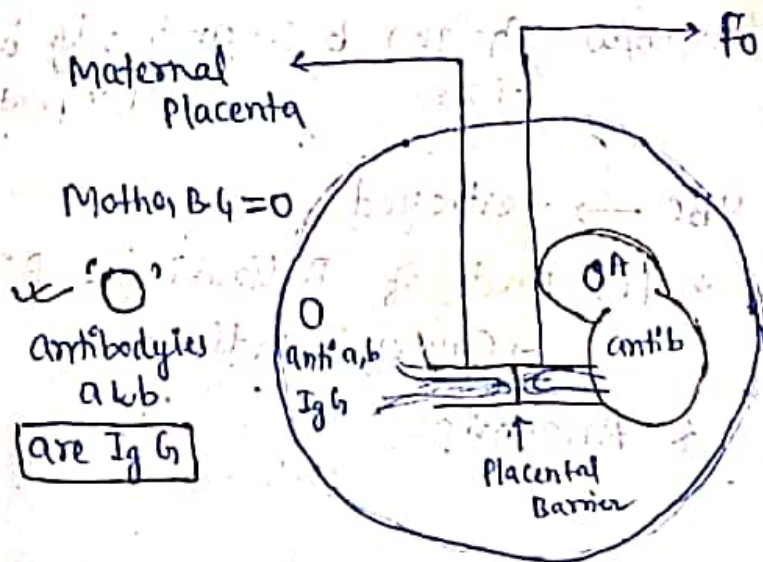 Maternal
Placenta
Mother B.G = O
'O'
antibodyies
a & b.
are Ig G
fo
O
anti a, b
Ig G
A
anti b
Placental
Barrier